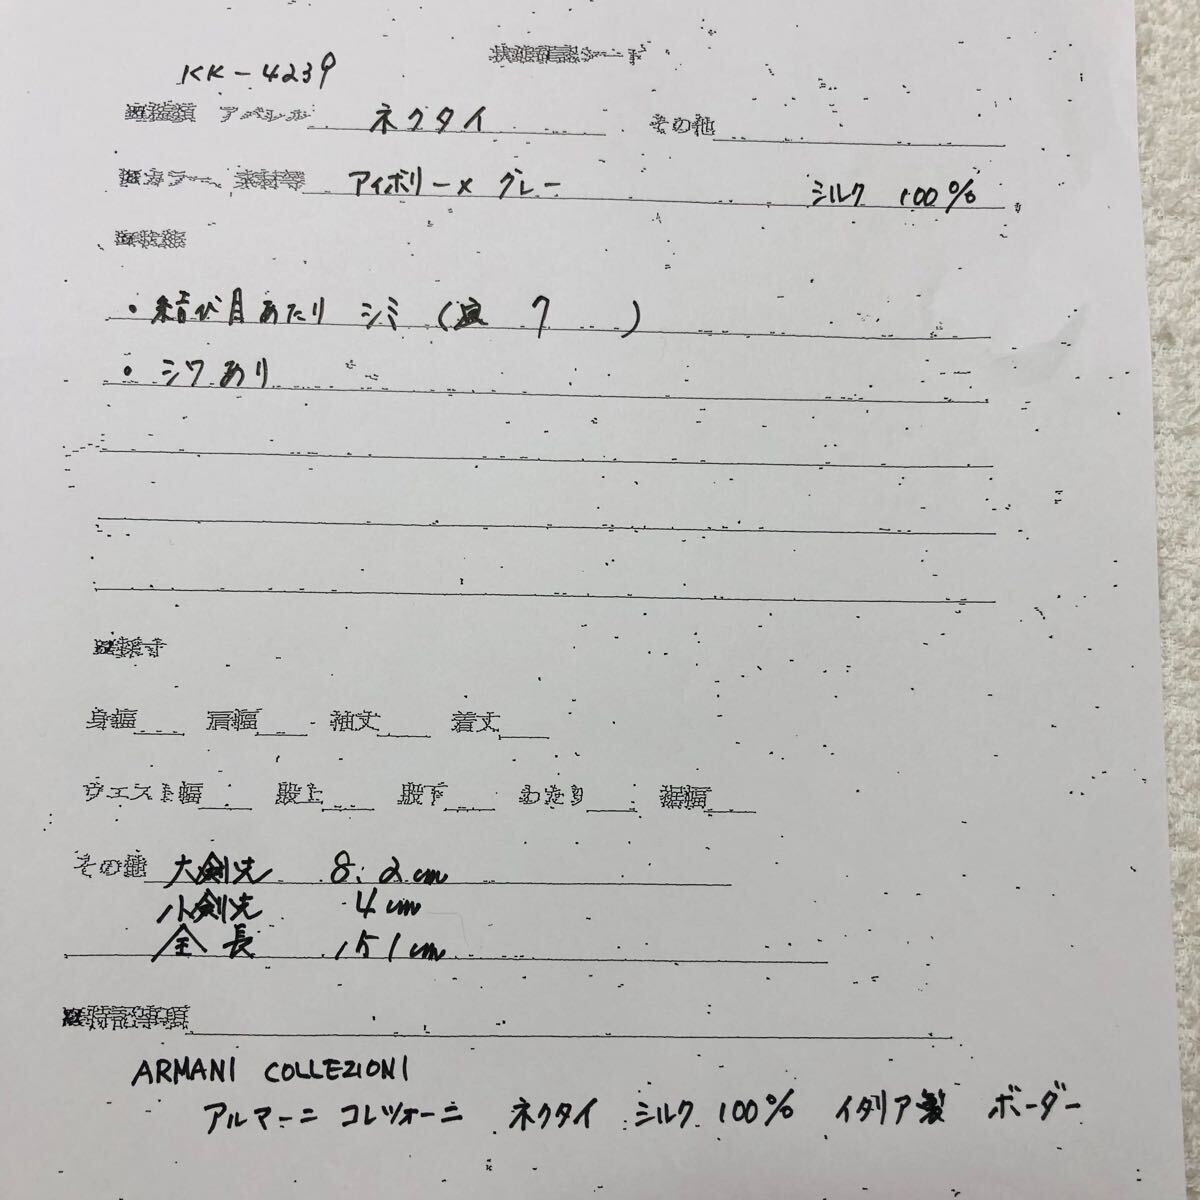 状態確認シート
KK-4239
アパレル ネクタイ その他
カラー、素材等 アイボリー×グレー シルク 100%
・結び目あたり シミ (
・シワあり
採寸
身幅 肩幅 袖丈 着丈
ウエスト幅 股上 股下 わたり 裾幅
その他 大剣先 8.2cm
小剣先 4cm
全長 151cm
特記事項
ARMANI COLLEZIONI
アルマーニ コレツォーニ ネクタイ シルク 100% イタリア製 ボーダー